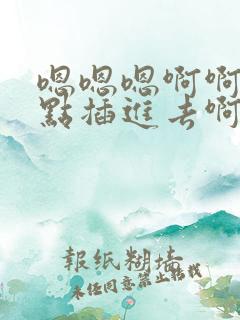 嗯嗯嗯啊啊
點插進去啊
報紙糊墙
未经同意禁止转载